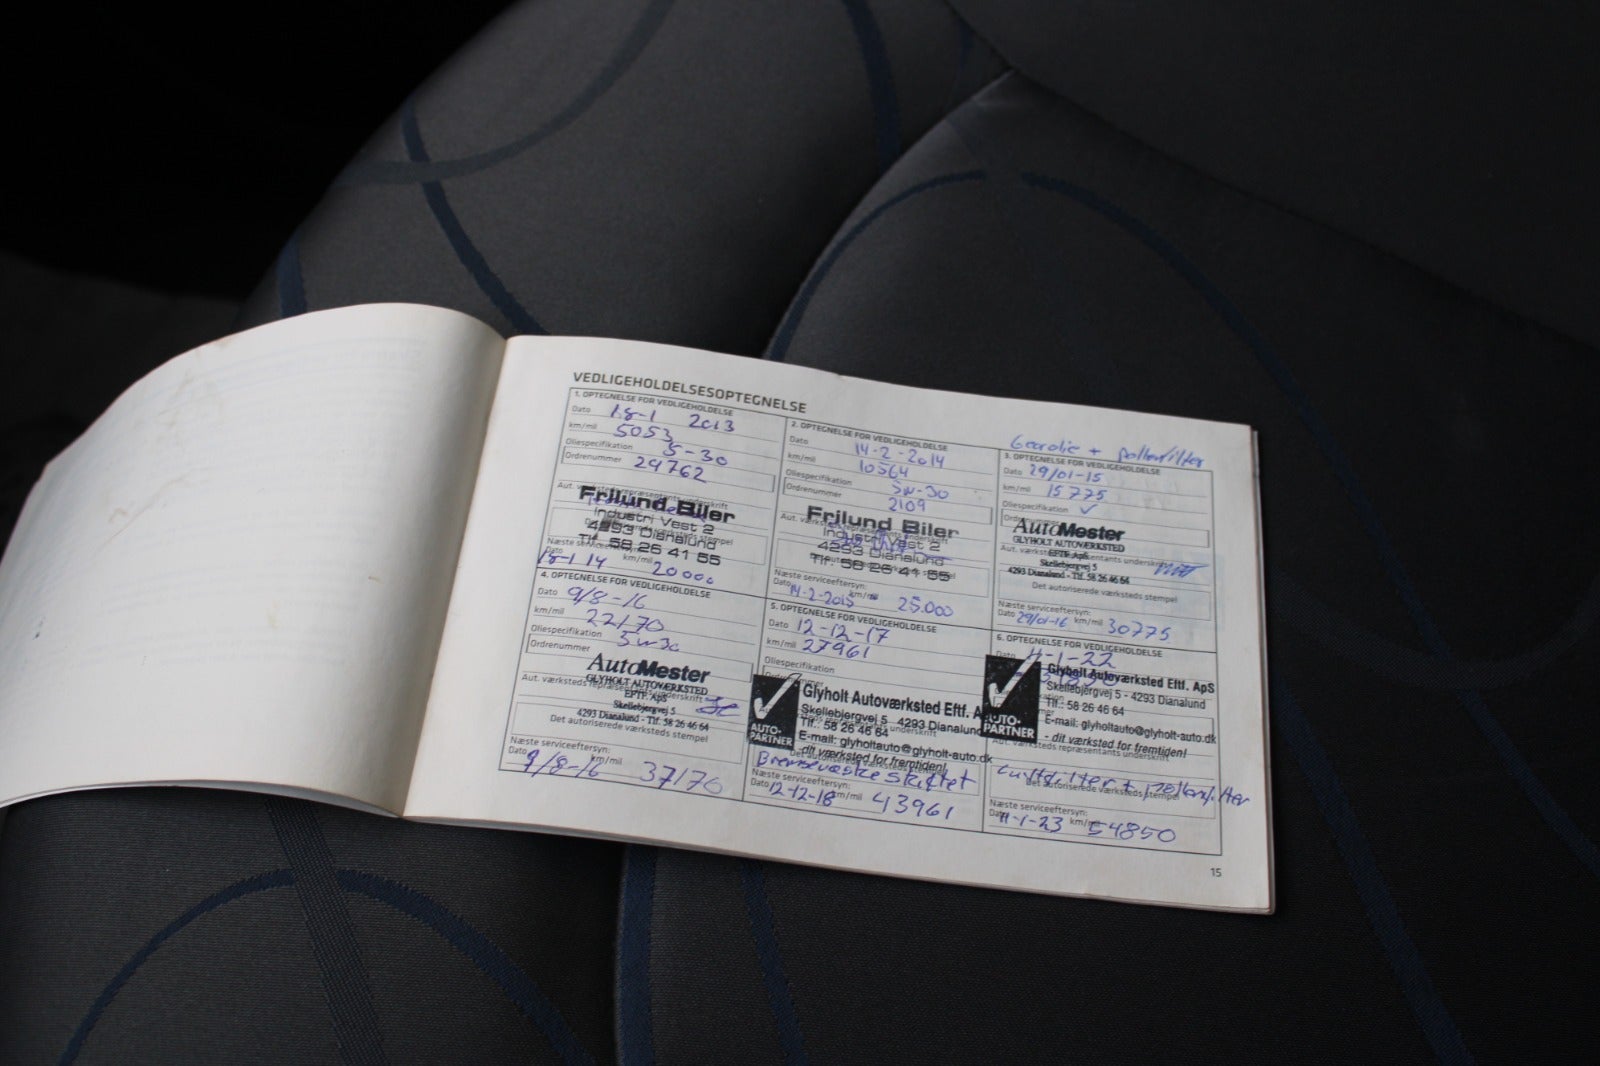 VEDLIGEHOLDELSESOPTEGNELSE
1. OPTEGNELSE FOR VEDLIGEHOLDELSE
Dato 18-1 2013
km/mil 5053
Oliespecifikation 5-30
Ordrenummer 24762
Frilund Biler
Industri Vest 2
4293 Dianalund
Tlf. 58 26 41 55
Næste serviceeftersyn:
Dato 18-1 14 km/mil 20000
2. OPTEGNELSE FOR VEDLIGEHOLDELSE
Dato 14-2-2014
km/mil 10564
Oliespecifikation 5w-30
Ordrenummer 2109
Frilund Biler
Industri Vest 2
4293 Dianalund
Tlf. 58 26 41 55
Næste serviceeftersyn:
Dato 14-2-2015 km/mil 25.000
Gearolie + pollenfilter
3. OPTEGNELSE FOR VEDLIGEHOLDELSE
Dato 29/01-15
km/mil 15775
Oliespecifikation ✓
AutoMester
GLYHOLT AUTOVÆRKSTED
EFTF. ApS
Skellebjergvej 5
4293 Dianalund - Tlf. 58 26 46 64
Det autoriserede værksteds stempel
Næste serviceeftersyn:
Dato 29/01-16 km/mil 30775
4. OPTEGNELSE FOR VEDLIGEHOLDELSE
Dato 9/8-16
km/mil 22170
Oliespecifikation 5w30
Ordrenummer
AutoMester
GLYHOLT AUTOVÆRKSTED
Aut. værksteds repræsentants underskrift
EFTF. ApS
Skellebjergvej 5
4293 Dianalund - Tlf. 58 26 46 64
Det autoriserede værksteds stempel
Næste serviceeftersyn:
Dato 9/8-16 km/mil 37170
5. OPTEGNELSE FOR VEDLIGEHOLDELSE
Dato 12-12-17
km/mil 27961
Oliespecifikation
AUTO-PARTNER
Glyholt Autoværksted Eftf. A
Skellebjergvej 5 4293 Dianalund
Tlf.: 58 26 46 64
E-mail: glyholtauto@glyholt-auto.dk
- dit værksted for fremtiden!
Bremsevæske skiftet
Næste serviceeftersyn:
Dato 12-12-18 km/mil 43961
6. OPTEGNELSE FOR VEDLIGEHOLDELSE
Dato 11-1-22
AUTO-PARTNER
Glyholt Autoværksted Eftf. ApS
Skellebjergvej 5 - 4293 Dianalund
Tlf.: 58 26 46 64
E-mail: glyholtauto@glyholt-auto.dk
- dit værksted for fremtiden!
Aut. værksteds repræsentants underskrift
Luftfilter + pollenfilter
Det autoriserede værksteds stempel
Næste serviceeftersyn:
Dato 11-1-23 km/mil 54850
15